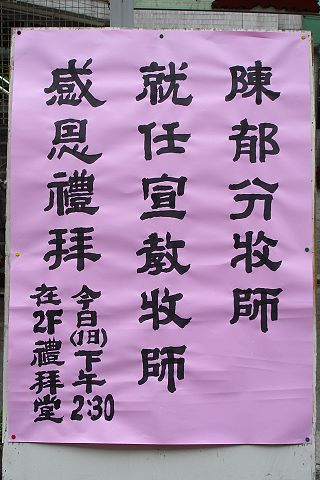 陳郁分牧師
就任宣教牧師
感恩禮拜
今日(1日)下午2:30
在2F禮拜堂